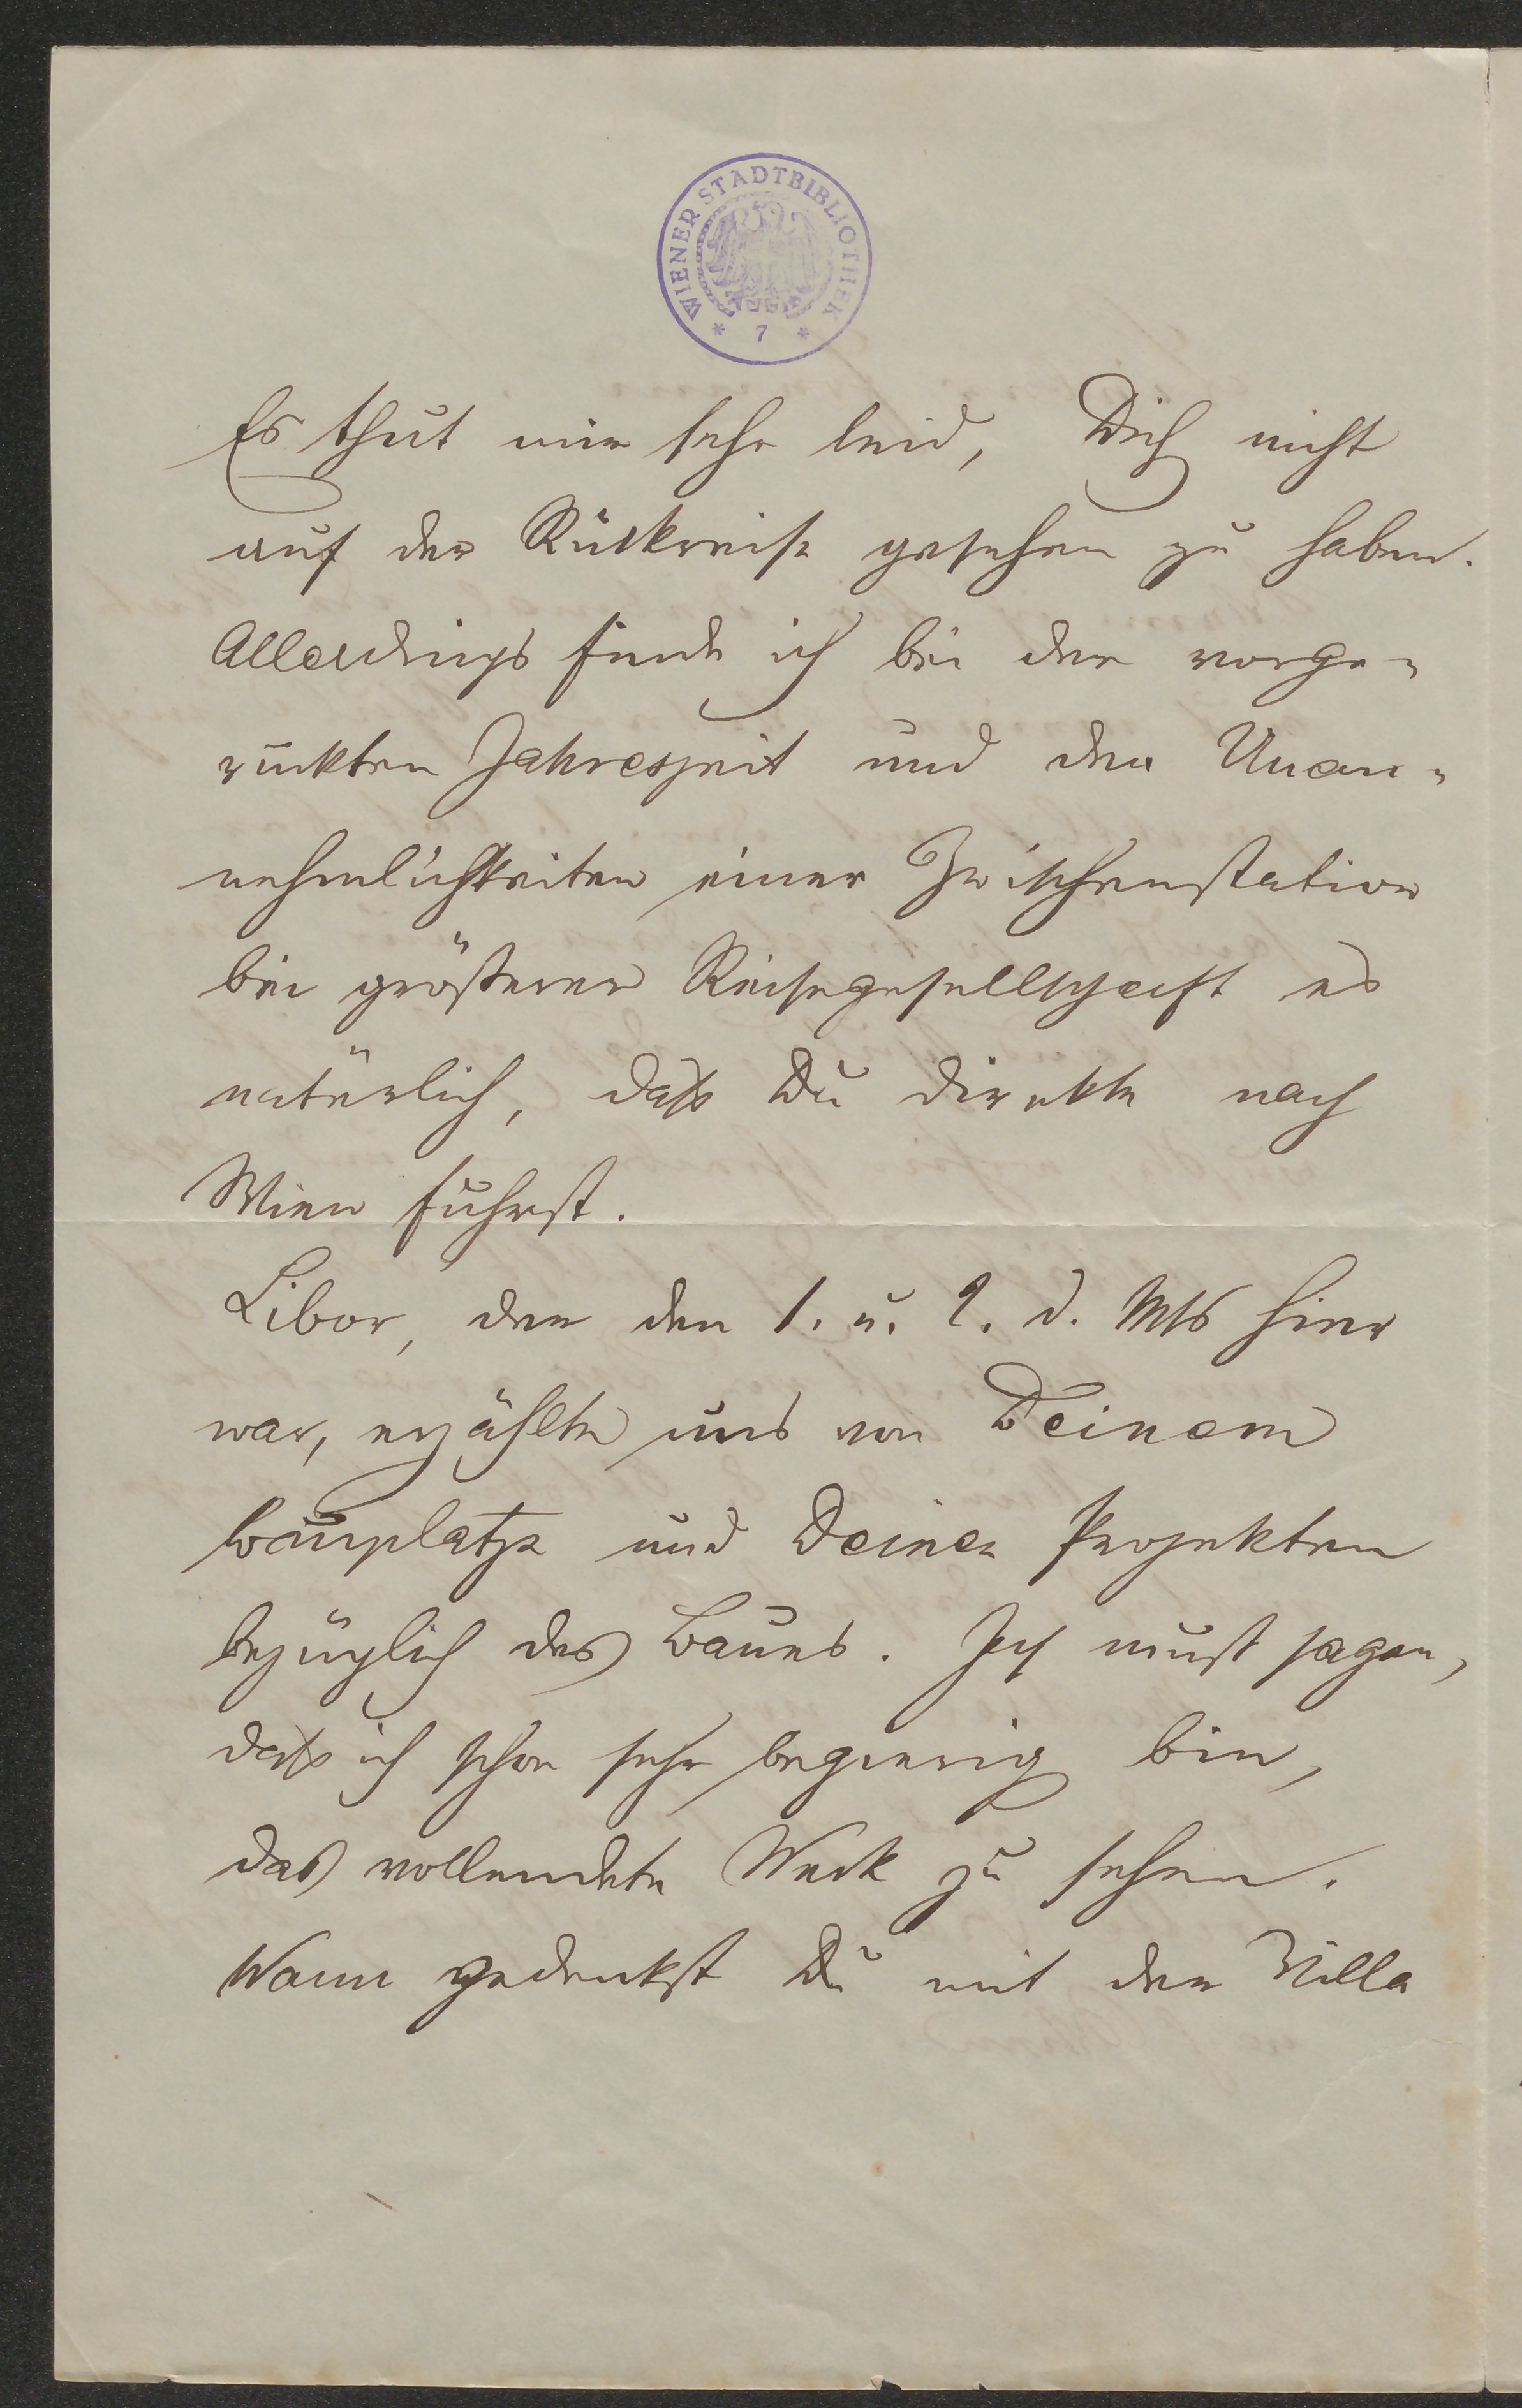 WIENER STADTBIBLIOTHEK
* 7 *
Es thut mir sehr leid, Dich nicht
auf der Rückreise gesehen zu haben.
Allerdings finde ich bei der vorge-
rückten Jahreszeit und den Unan-
nehmlichkeiten einer Zwischenstation
bei größerer Reisegesellschaft es
natürlich, daß Du direkte nach
Wien fuhrst.
Libor, der den 1. u. 2. d. Mts hier
war, erzählte uns von Deinem
Bauplatze und Deinen Projekten
bezüglich des Baues. Ich muß sagen,
daß ich schon sehr begierig bin,
das vollendete Werk zu sehen.
Wann gedenkst Du mit der Villa